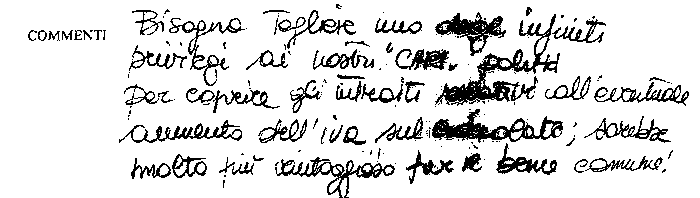 COMMENTI Bisogna Togliere uno degli infiniti
privilegi ai nostri "CARI" politici
per coprire gli introiti relativi all'eventuale
aumento dell'iva sul cioccolato; sarebbe
molto più vantaggioso per il bene comune!